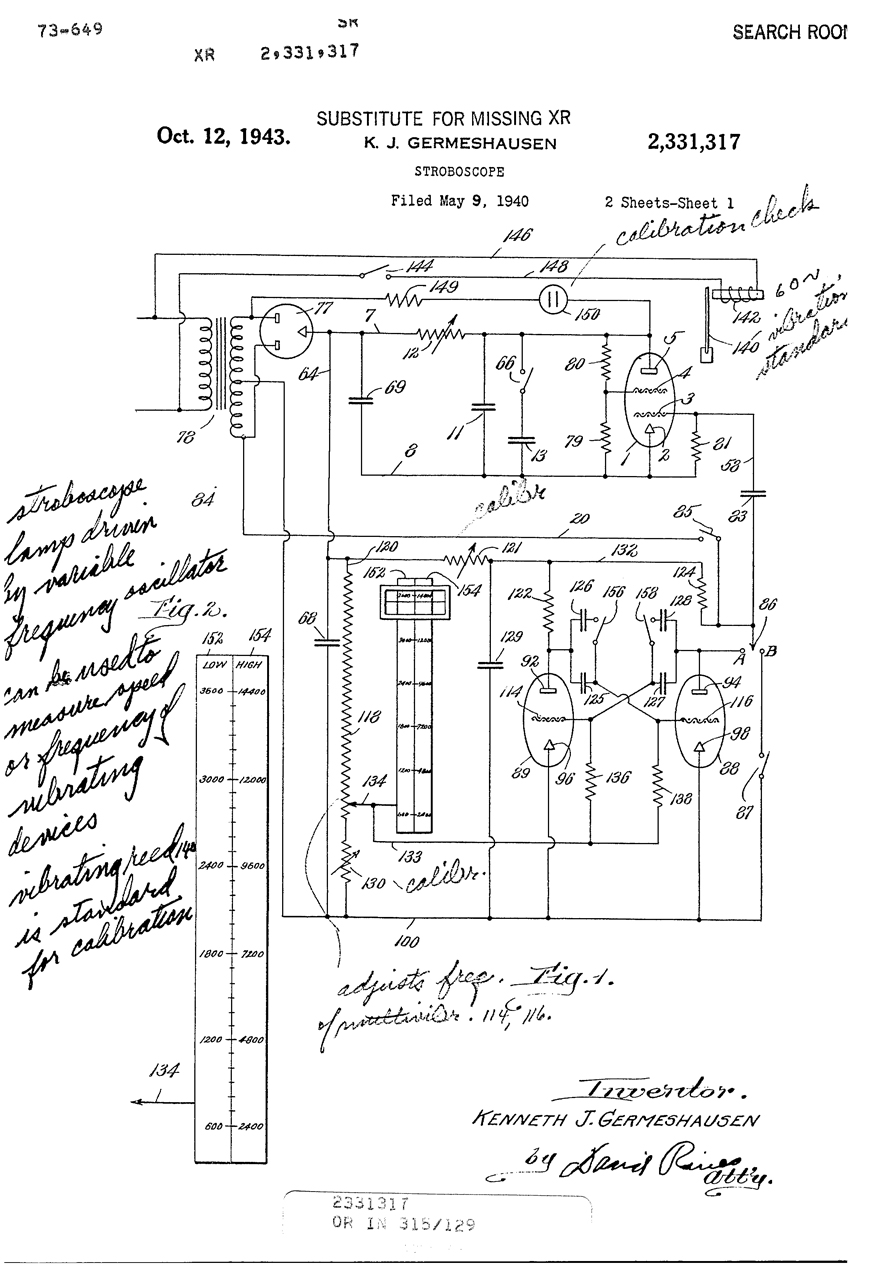 73-649
SR
SEARCH ROOM
XR 2,331,317
SUBSTITUTE FOR MISSING XR
Oct. 12, 1943.
K. J. GERMESHAUSEN
2,331,317
STROBOSCOPE
Filed May 9, 1940
2 Sheets-Sheet 1
calibration check
146
144
148
149
150
142
60~
vibration
standard
140
77
7
12
64
69
11
66
13
80
79
5
4
3
2
1
81
58
83
78
8
calibr
20
85
84
stroboscope
lamp driven
by variable
frequency oscillator
can be used to
measure speed
or frequency of
vibrating
devices
vibrating reed 140
is standard
for calibration
120
121
132
152
154
122
126
156
158
128
124
86
A
B
68
129
92
94
114
125
127
116
96
98
89
88
87
118
134
136
138
133
130
calibr.
100
3600 12000
2400 9600
1800 7200
1200 4800
600 2400
adjusts freq.
of multivibr. 114, 116.
Fig. 1.
Fig. 2.
152 154
LOW HIGH
3600 14400
3000 12000
2400 9600
1800 7200
1200 4800
600 2400
134
Inventor.
KENNETH J. GERMESHAUSEN
by David Rines
Att'y.
2331317
OR IN 315/129